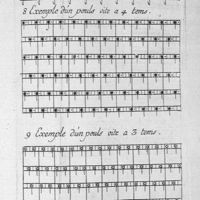 8 Exemple d'un pouls vite a 4 tems.
9 Exemple d'un pouls vite a 3 tems.